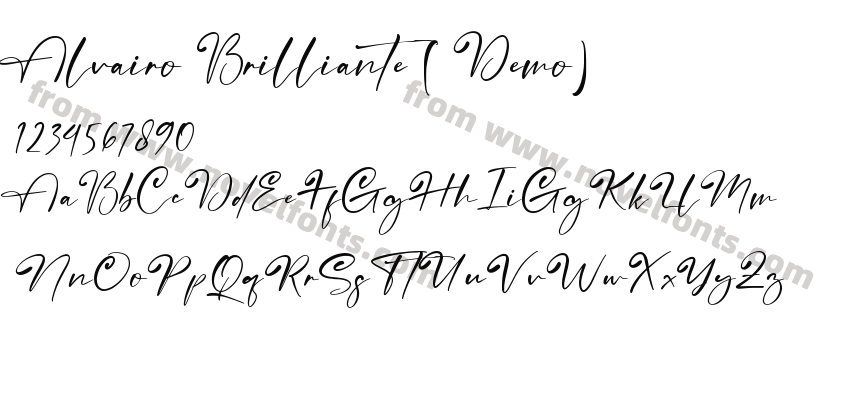 Alvairo Brilliante ( Demo)
1234567890
AaBbCcDdEeFfGgHhIiGgKkLlMm
NnOoPpQqRrSsTtUuVvWwXxYyZz
from www.novelfonts.com
from www.novelfonts.com